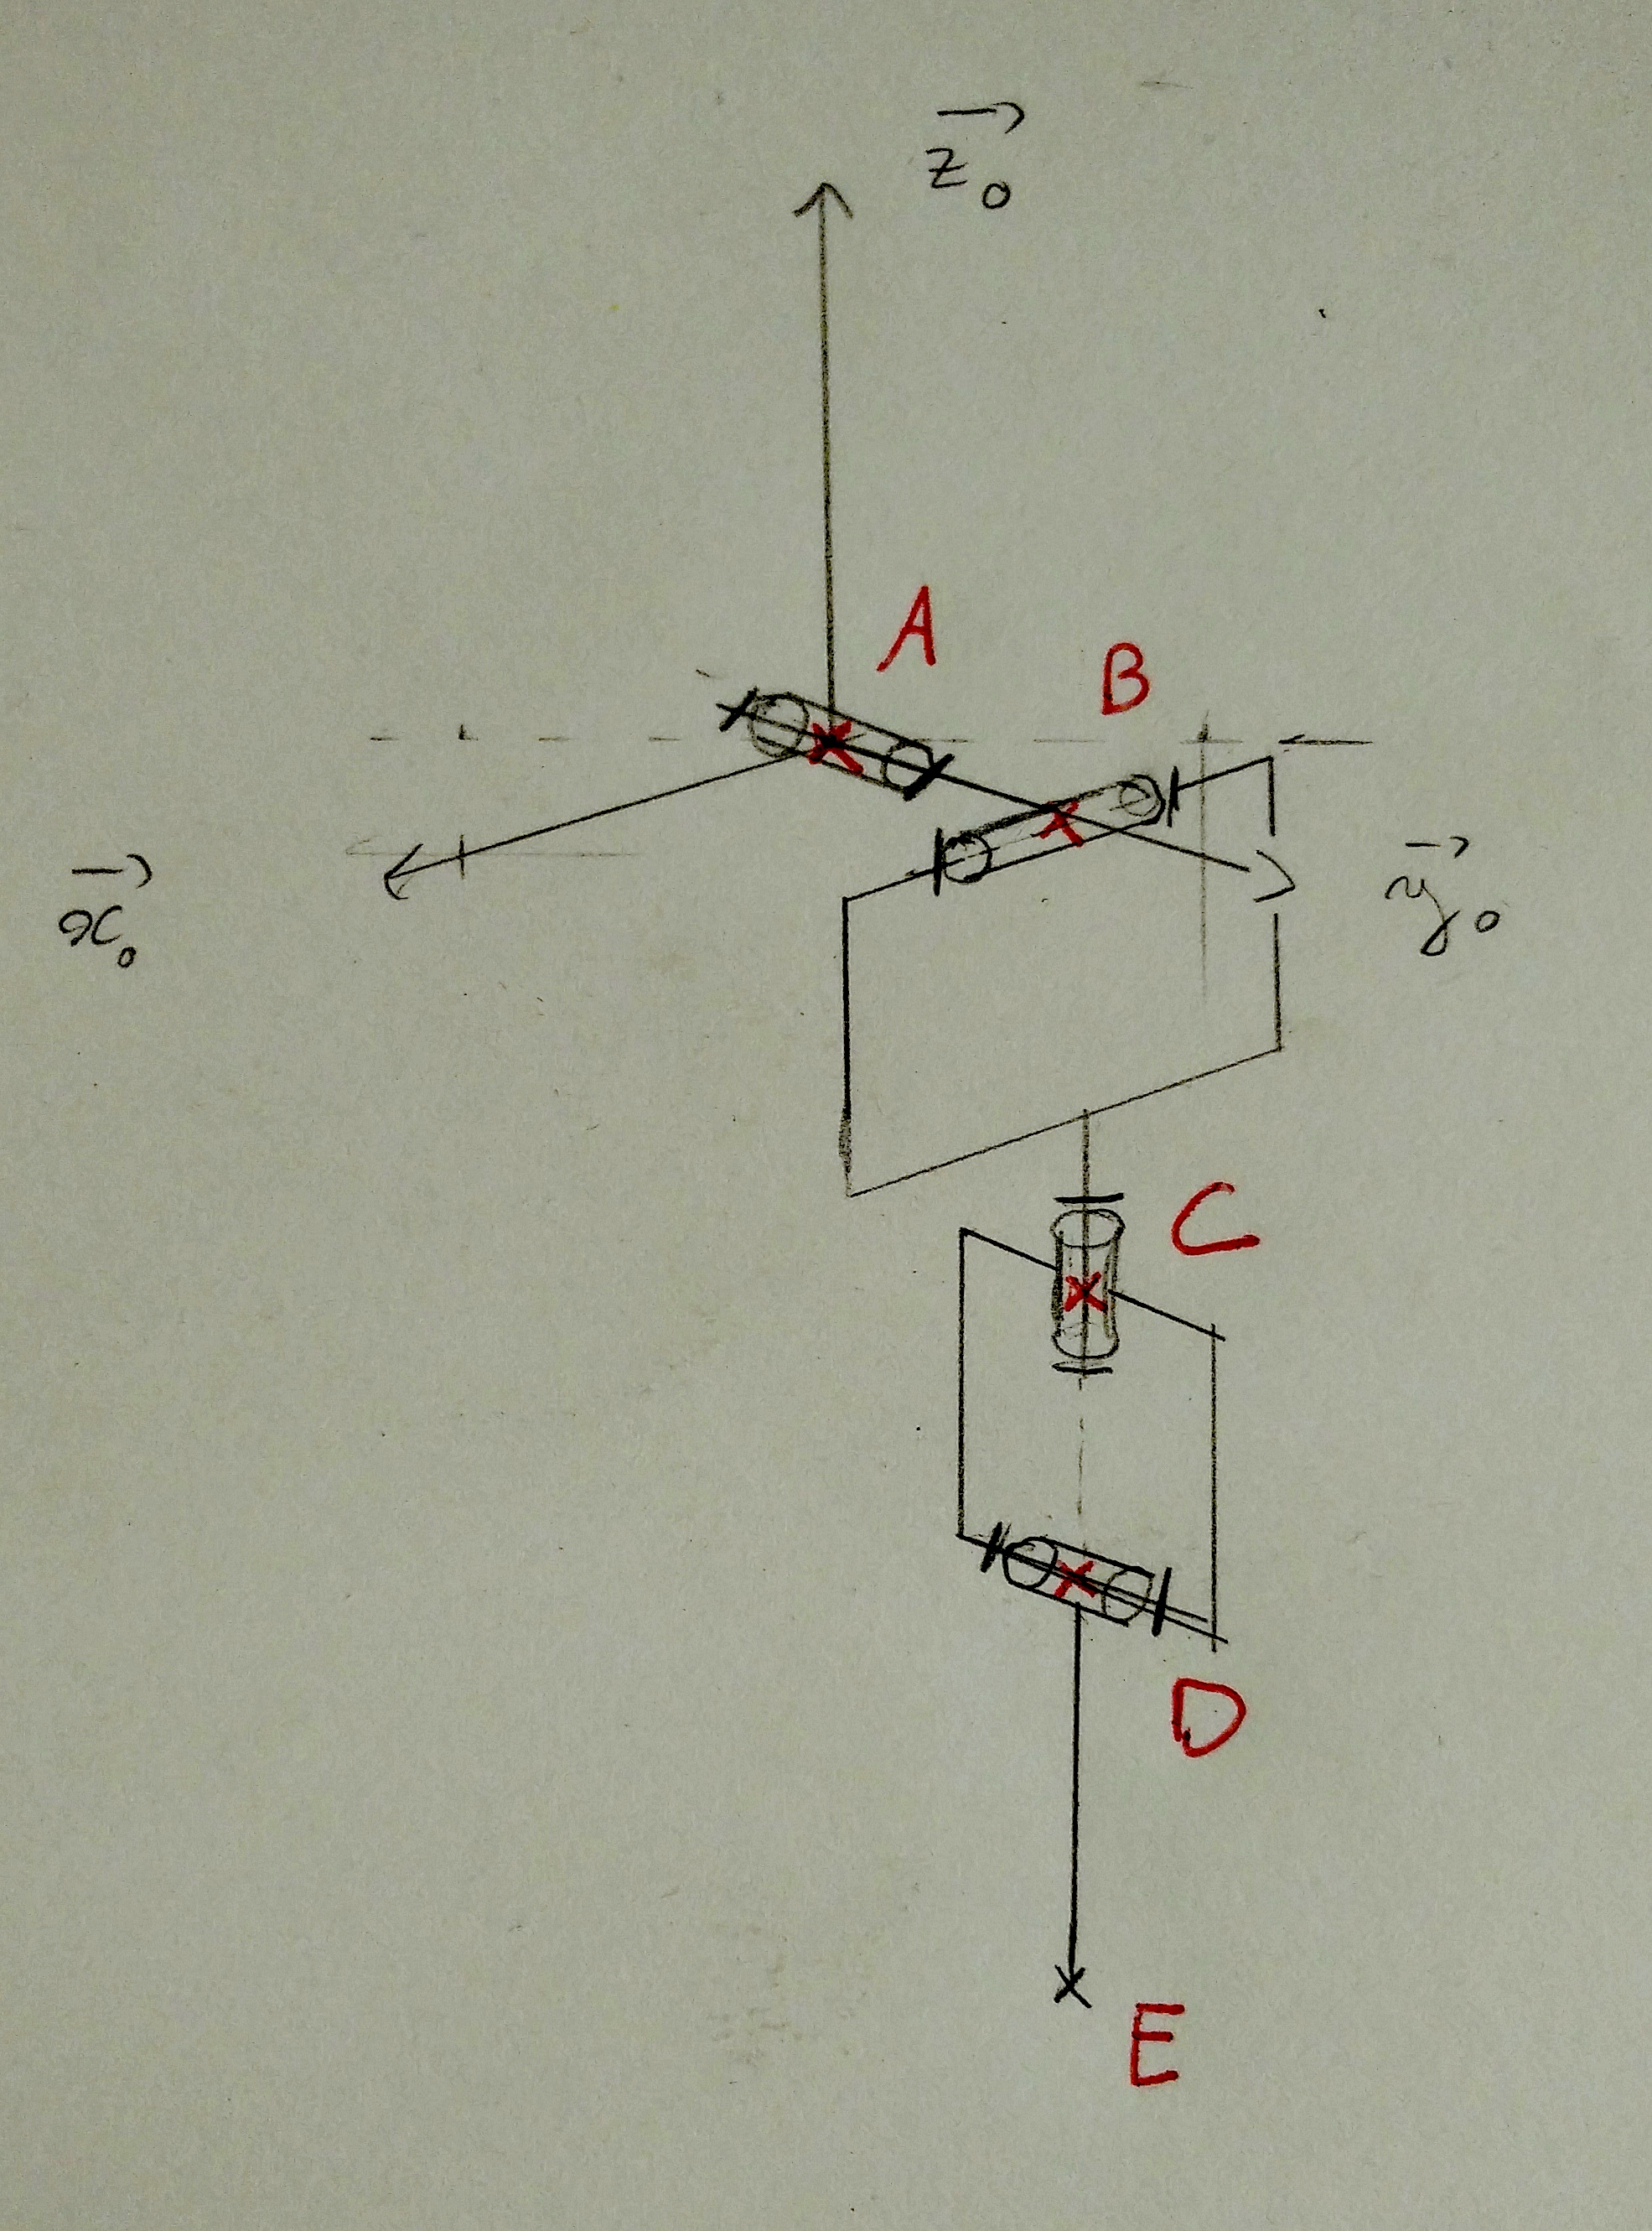 z₀
A
B
x₀
y₀
C
D
E